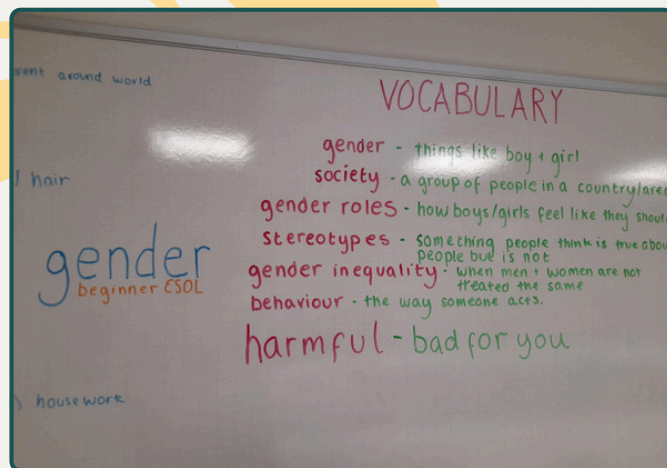 around world
VOCABULARY
gender - things like boy + girl
society - a group of people in a country/area
hair
gender roles - how boys/girls feel like they
stereotypes - something people think is true
people but is not
gender
beginner ESOL
gender inequality - when men + women are not
treated the same
behaviour - the way someone acts.
harmful - bad for you
housework